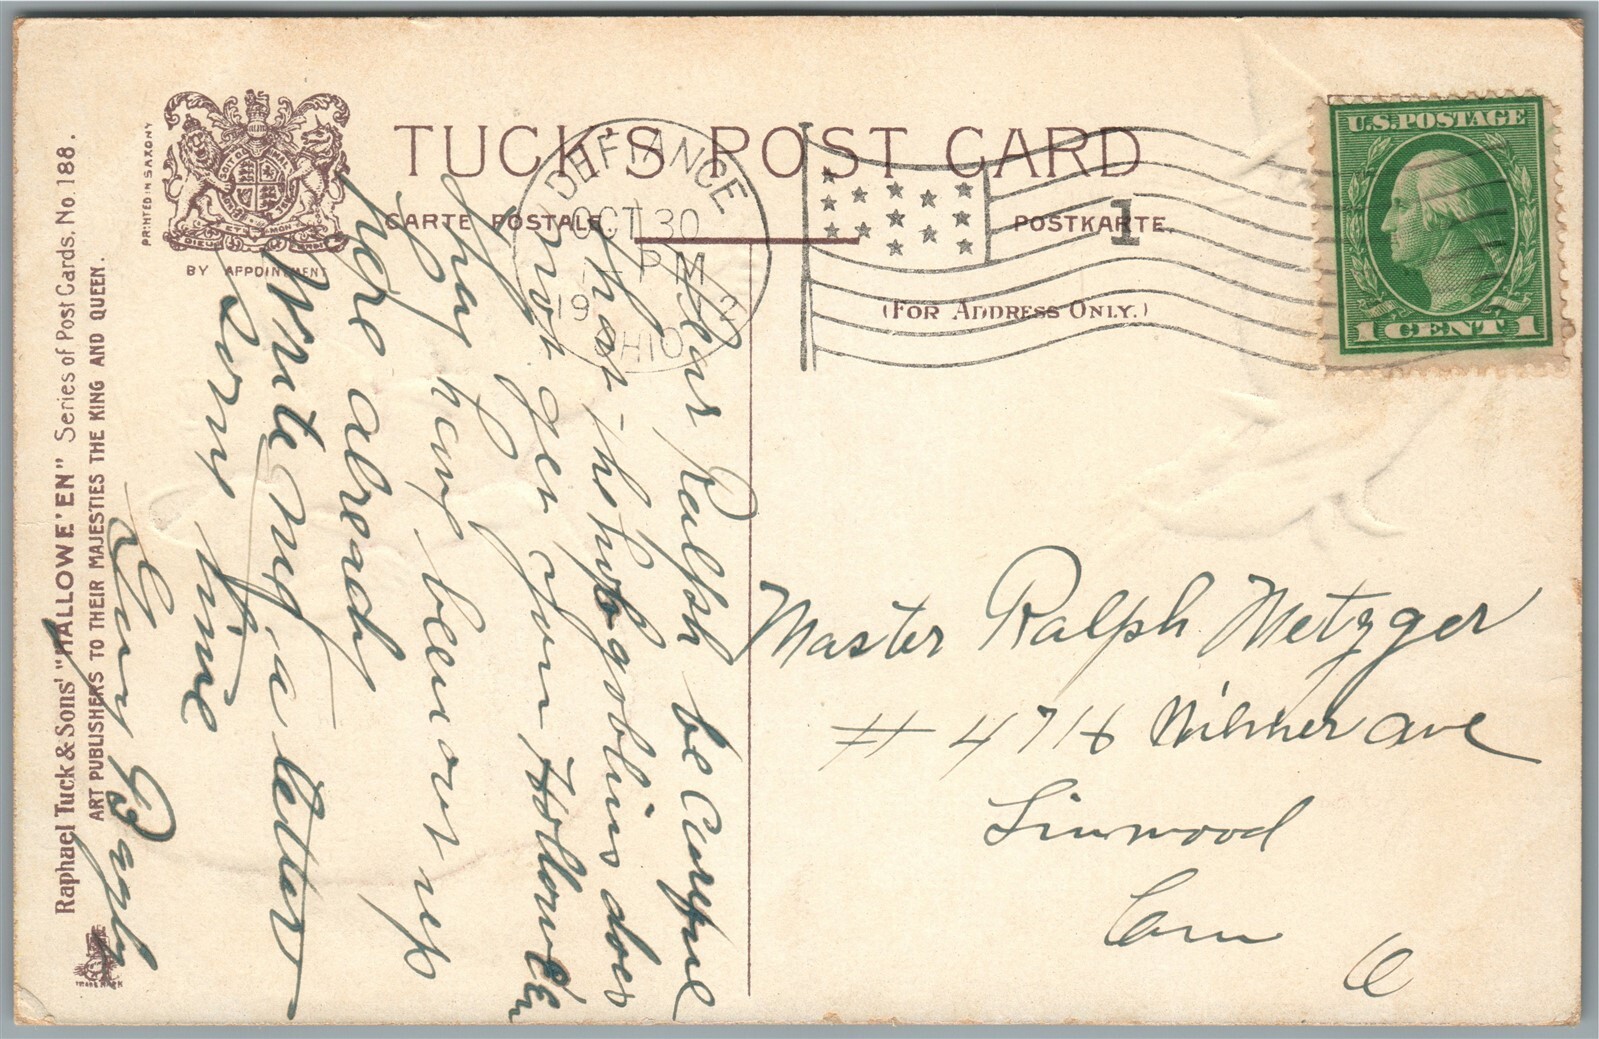 TUCK'S POST CARD
CARTE POSTALE
POSTKARTE.
(FOR ADDRESS ONLY.)
PRINTED IN SAXONY
BY APPOINTMENT
Raphael Tuck & Sons' "HALLOWE'EN" Series of Post Cards. No. 188.
ART PUBLISHERS TO THEIR MAJESTIES THE KING AND QUEEN.
TRADE MARK
DEFIANCE
OCT 30
PM
19 2
OHIO
1
U.S. POSTAGE
1 CENT 1
Dear Ralph be careful
that the hobgoblins does
not get you Hollowe'En
They have been out up
here already
Write me a letter
some time
Guy Bagley
Master Ralph Metzger
# 4716 Ave
Linwood
O